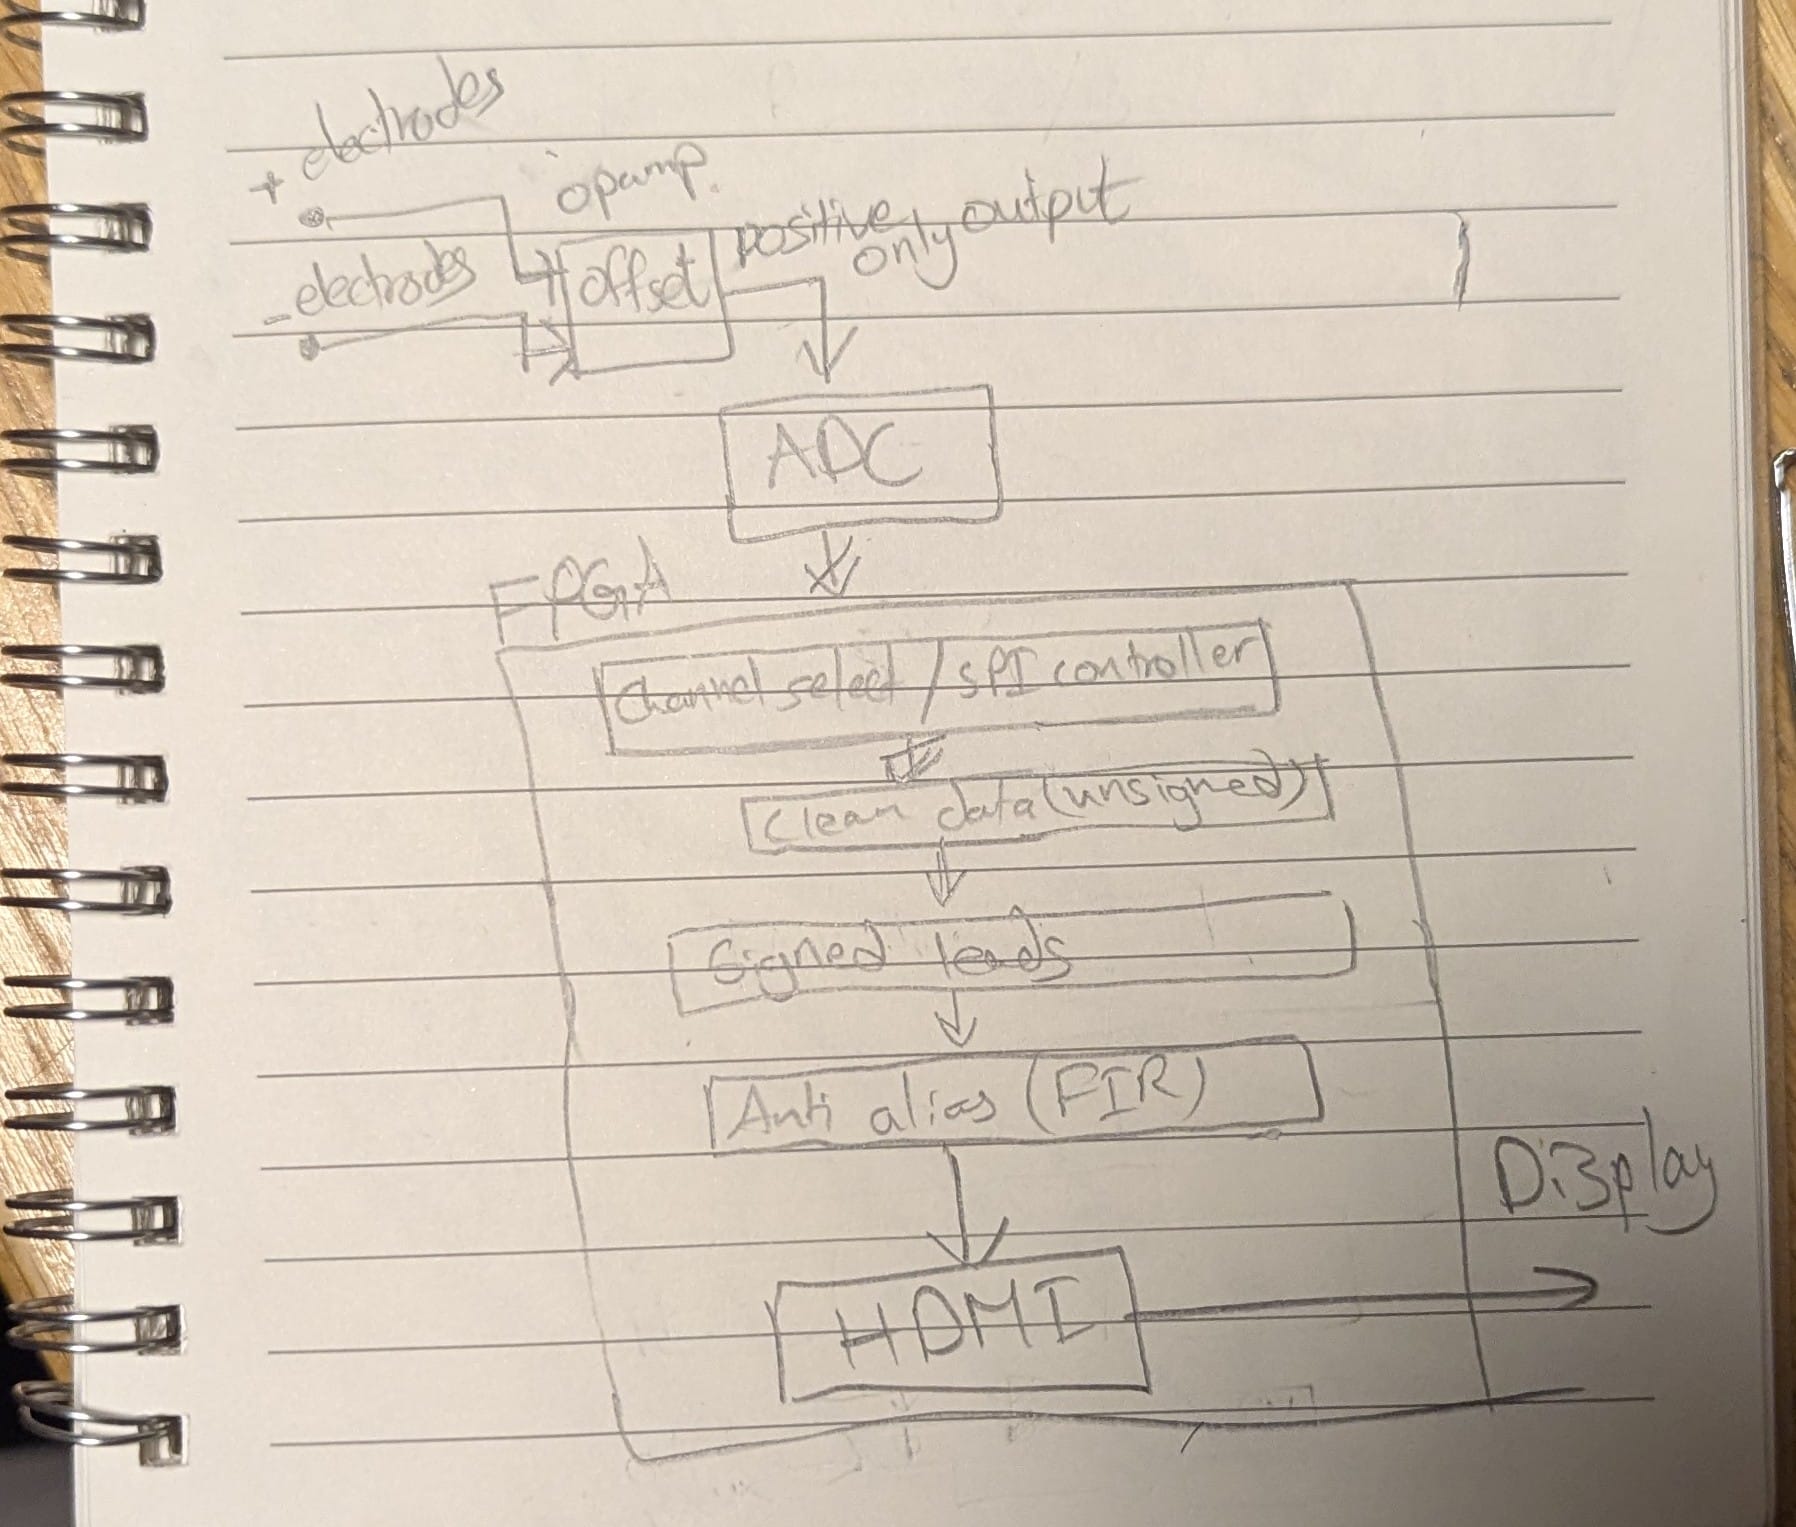 + electrodes
opamp.
- electrodes
offset
positive only output
ADC
FPGA
Channel select / SPI controller
Clean data (unsigned)
Signed leads
Anti alias (FIR)
Display
HDMI